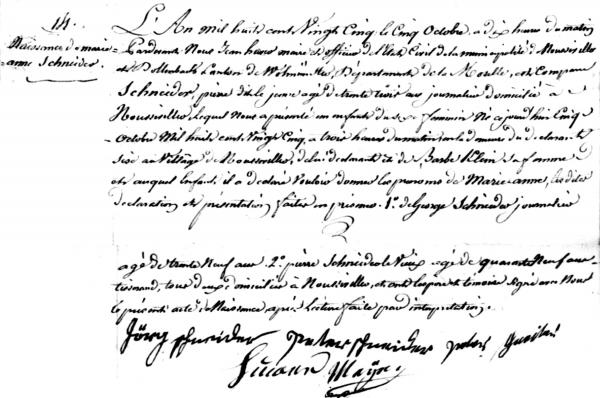 14.
Naissance de marie
anne Schneider.
L'An mil huit cent Vingt Cinq le Cinq Octobre, a dix heures du matin
Pardevant Nous Jean maire et officier de l'Etat Civil de la municipalité de Nousseviller
et Canton de Département de la Moselle, est Comparu
Schneider, pierre dit le jeune agé de trente trois ans journalier domicilié à
Nousseviller Lequel Nous a presenté un enfant du sexe feminin Né cejourd'hui Cinq
Octobre Mil huit cent Vingt Cinq, a trois heures du matin, en la demeure du declarant
Sise au Village de Nousseviller, de lui declarant et de Barbe Sa femme
et auquel Enfant il a declaré Vouloir donner les prenoms de Marie anne, Les dites
declaration et présentation faites en presence 1.º de George Schneider journalier
agé de trente Neuf ans 2.º pierre Schneider le Vieux agé de quarante Neuf ans
tisserand, tous deux domiciliés à Nousseviller, et ont le pere et temoins Signé avec Nous
le présent acte de Naissance, après Lecture faite par interpretation.
Jörg schneider peter schneider peter
Maÿre